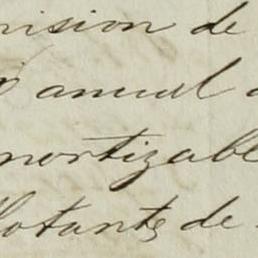 nision de
anual a
mortizable
flotante de